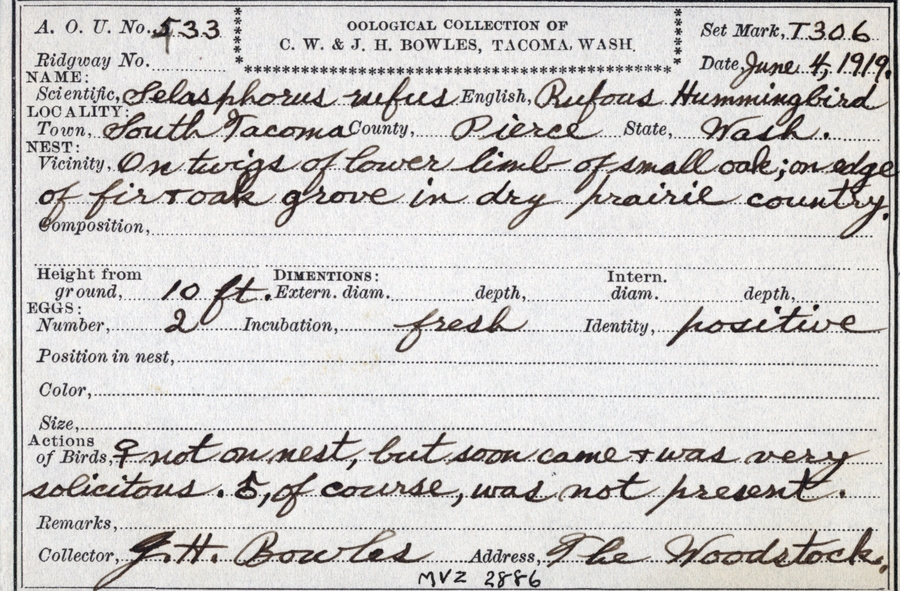 A. O. U. No. 533
OOLOGICAL COLLECTION OF
C. W. & J. H. BOWLES, TACOMA, WASH.
Set Mark, T306
Ridgway No.
Date, June 4, 1919.
NAME:
Scientific, Selasphorus rufus English, Rufous Hummingbird
LOCALITY:
Town, South Tacoma County, Pierce State, Wash.
NEST:
Vicinity, On twigs of lower limb of small oak; on edge
of fir & oak grove in dry prairie country.
Composition,
Height from ground, 10 ft. DIMENTIONS: Extern. diam. depth, Intern. diam. depth,
EGGS:
Number, 2 Incubation, fresh Identity, positive
Position in nest,
Color,
Size,
Actions of Birds, ♀ not on nest, but soon came & was very
solicitous. ♂, of course, was not present.
Remarks,
Collector, J. H. Bowles Address, The Woodstock.
MVZ 2886